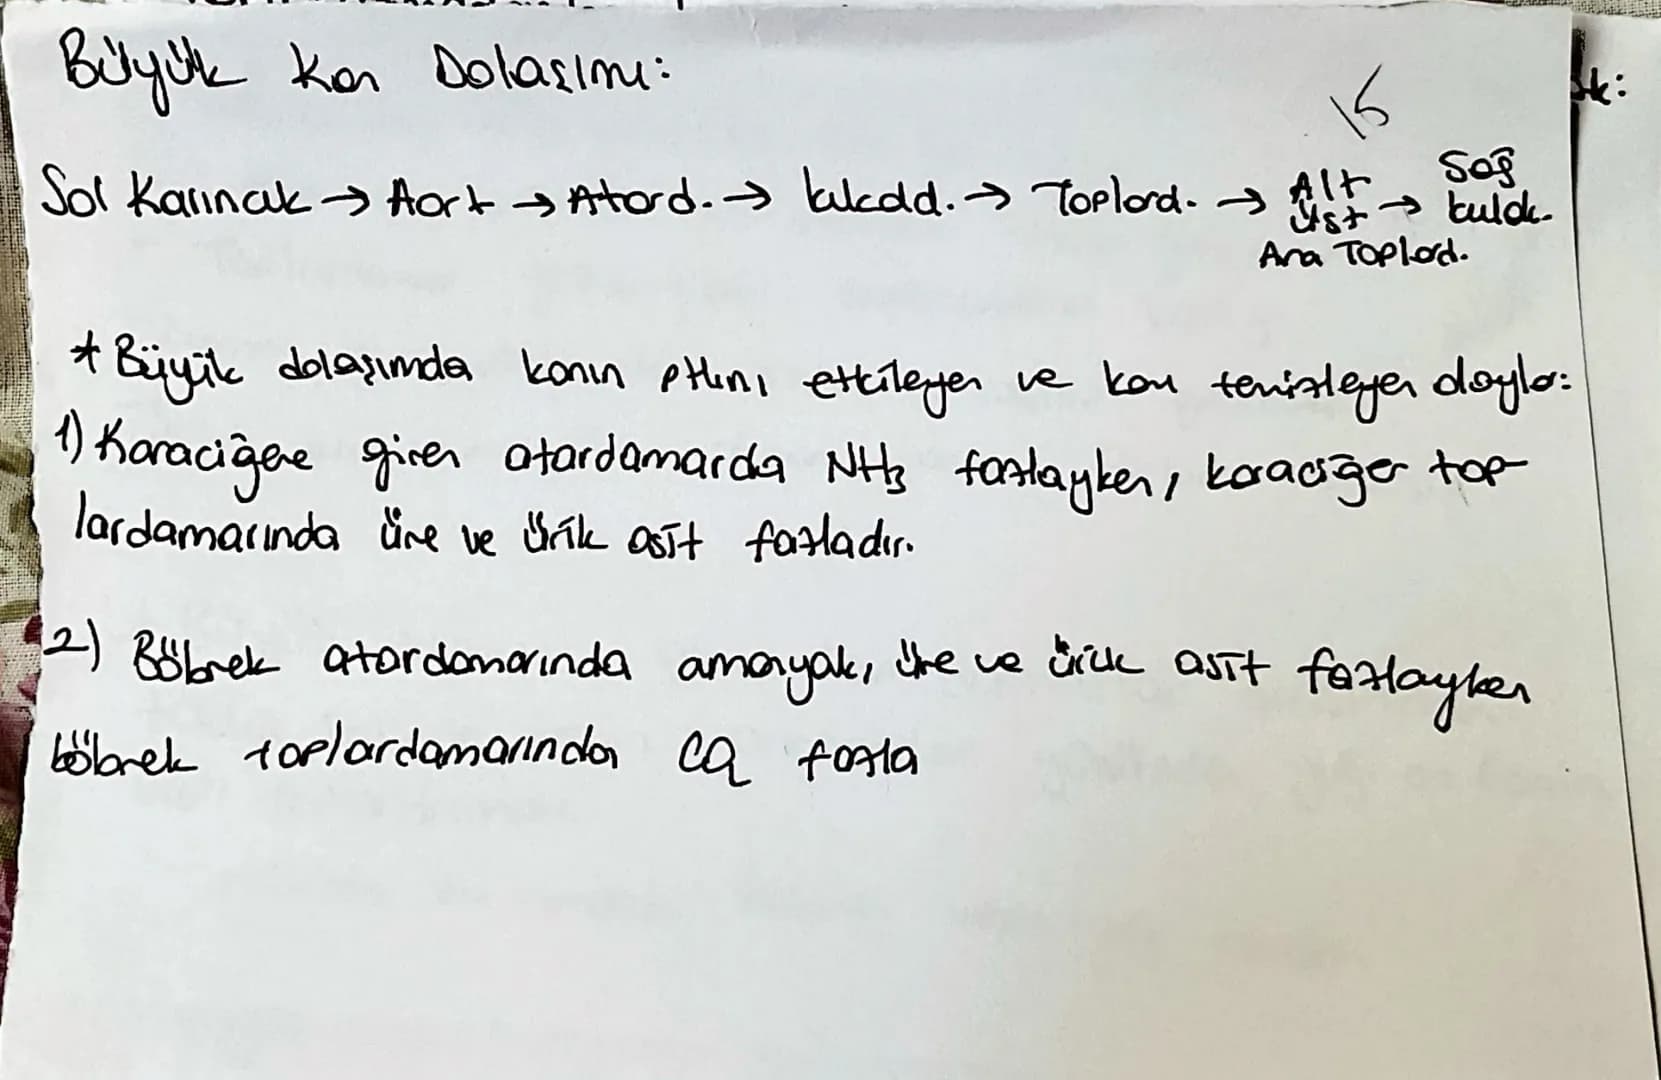 Büyük Kan Dolaşımı:
15
Sol Karıncık → Aort → Atard. → kılcald. → Toplard. → Alt Üst Ana Toplard. → Sağ kulak.
* Büyük dolaşımda kanın pHını etkileyen ve kanı temizleyen olaylar:
1) Karaciğere giren atardamarda NH3 fazlayken, karaciğer top
lardamarında üre ve ürik asit fazladır.
2) Böbrek atardamarında amonyak, üre ve ürik asit fazlayken
böbrek toplardamarında CO2 fazla